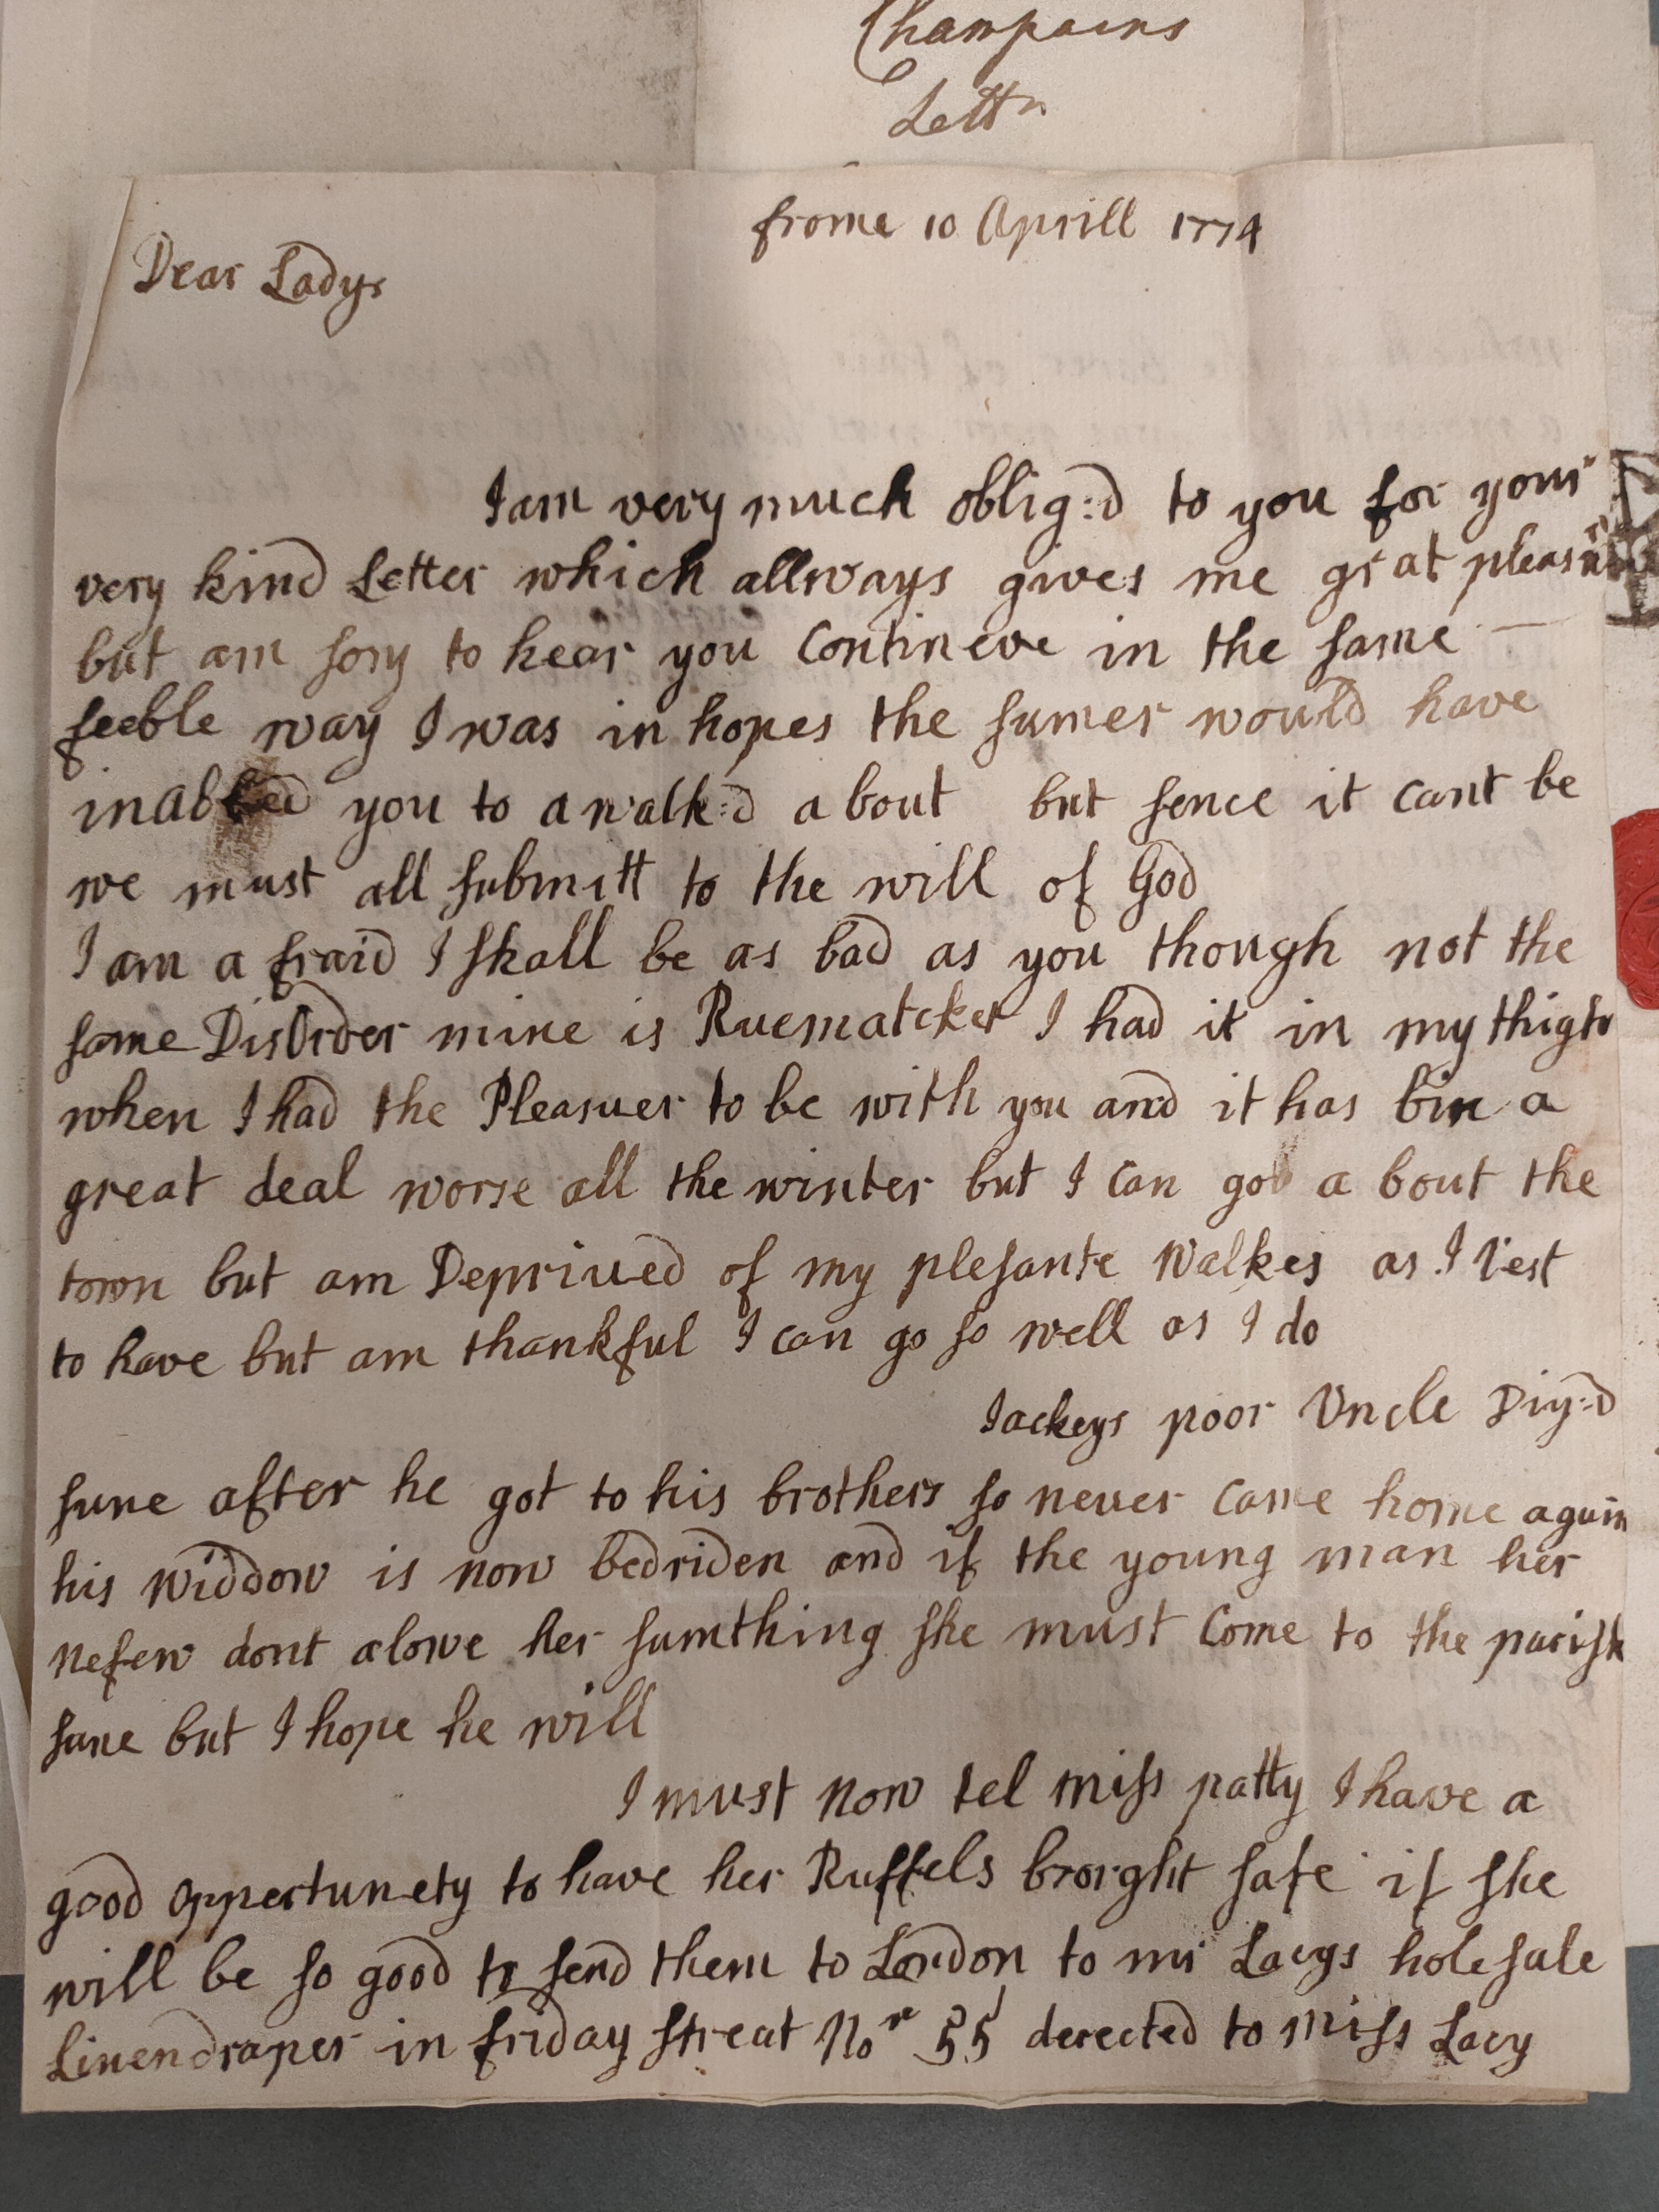 Champains
Lettr
frome 10 Aprill 1774
Dear Ladys
I am very much oblig:d to you for your
very kind Letter which allways gives me grat pleasur
but am sory to hear you Contineve in the same
feeble way I was in hopes the sumer would have
inabled you to a walk:d a bout but sence it cant be
we must all submitt to the will of God
I am a fraid I shall be as bad as you though not the
same DisOrder mine is Ruematcker I had it in my thigh
when I had the Pleasuer to be with you and it has bin a
great deal worse all the winter but I can go a bout the
town but am Deprived of my plesante Walkes as I Vest
to have but am thankful I can go so well as I do
Jackeys poor Uncle Diy:d
sune after he got to his brothers so never came home again
his widdow is now bedriden and if the young man her
Nefew dont alowe her sumthing she must Come to the parish
sune but I hope he will
I must now tel miss patty I have a
good oppertunety to have her Ruffels brorght safe if she
will be so good to send them to London to mr Lacys holesale
Linendraper in friday streat Nor 55 derected to miss Lacy